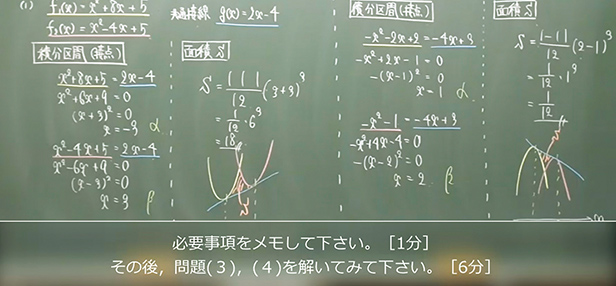 (1) f₁(x)=x²+8x+5
f₂(x)=x²-4x+5
積分区間(接点)
x²+8x+5=2x-4
x²+6x+9=0
(x+3)²=0
x=-3 α
x²-4x+5=2x-4
x²-6x+9=0
(x-3)²=0
x=3 β
共通接線 g(x)=2x-4
面積S
S=|1|/12(3+3)³
=1/12・6³
=18
積分区間(接点)
-x²-2x+2=-4x+3
-x²+2x-1=0
-(x-1)²=0
x=1 α
-x²-1=-4x+3
-x²+4x-4=0
-(x-2)²=0
x=2 β
面積S
S=|-1|/12(2-1)³
=1/12・1³
=1/12
必要事項をメモして下さい。［1分］
その後，問題(３)，(４)を解いてみて下さい。［6分］